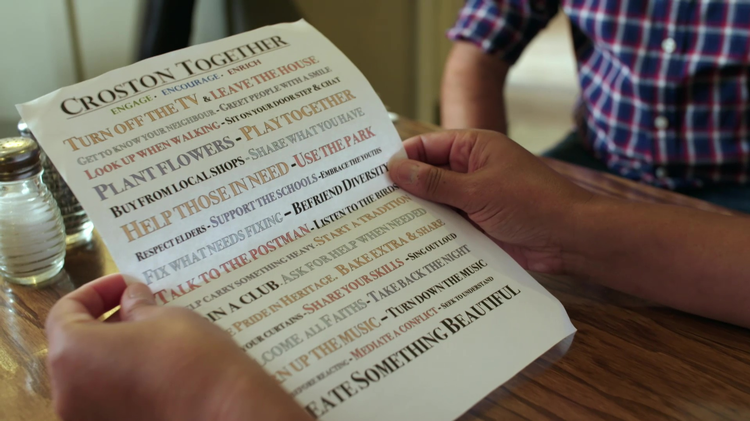 CROSTON TOGETHER
ENGAGE · ENCOURAGE · ENRICH
TURN OFF THE TV & LEAVE THE HOUSE
GET TO KNOW YOUR NEIGHBOUR - GREET PEOPLE WITH A SMILE
LOOK UP WHEN WALKING - SIT ON YOUR DOOR STEP & CHAT
PLANT FLOWERS - PLAY TOGETHER
BUY FROM LOCAL SHOPS - SHARE WHAT YOU HAVE
HELP THOSE IN NEED - USE THE PARK
RESPECT ELDERS - SUPPORT THE SCHOOLS - EMBRACE THE YOUTHS
FIX WHAT NEEDS FIXING – BEFRIEND DIVERSITY
TALK TO THE POSTMAN - LISTEN TO THE BIRDS
LP CARRY SOMETHING HEAVY. START A TRADITION
IN A CLUB. ASK FOR HELP WHEN NEEDED
PRIDE IN HERITAGE. BAKE EXTRA & SHARE
YOUR CURTAINS - SHARE YOUR SKILLS - SING OUT LOUD
COME ALL FAITHS - TAKE BACK THE NIGHT
N UP THE MUSIC – TURN DOWN THE MUSIC
BEFORE REACTING - MEDIATE A CONFLICT - SEEK TO UNDERSTAND
EATE SOMETHING BEAUTIFUL